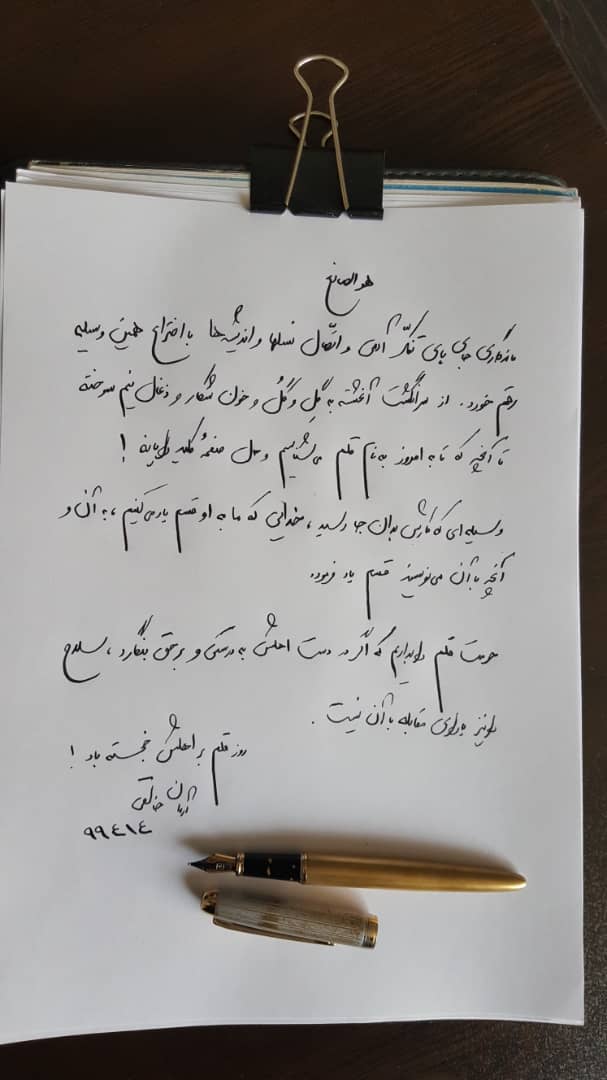 هو الصانع
ماندگاری جای پای تفکّر آدمی و اتّصال نسلها و اندیشه‌ها با اختراع همین وسیله
رقم خورد. از سرانگشت آغشته به گِل و گُل و خون شکار و ذغال نیم سوخته
تا آنچه که تا به امروز به نام قلم می‌شناسیم و حال صفحهٔ کلید رایانه !
وسیله‌ای که کارش بدان جا رسید ، خدایی که ما به او قسم یاد می‌کنیم ، به آن و
آنچه با آن می‌نویسند قسم یاد فرموده.
حرمت قلم را بداریم که اگر در دست اهلش به درستی و بر حق بنگارد ، سلاح
را نیز یارای مقابله با آن نیست .
روز قلم بر اهلش خجسته باد !
آرمان خالقی
۹۹٤۱٤